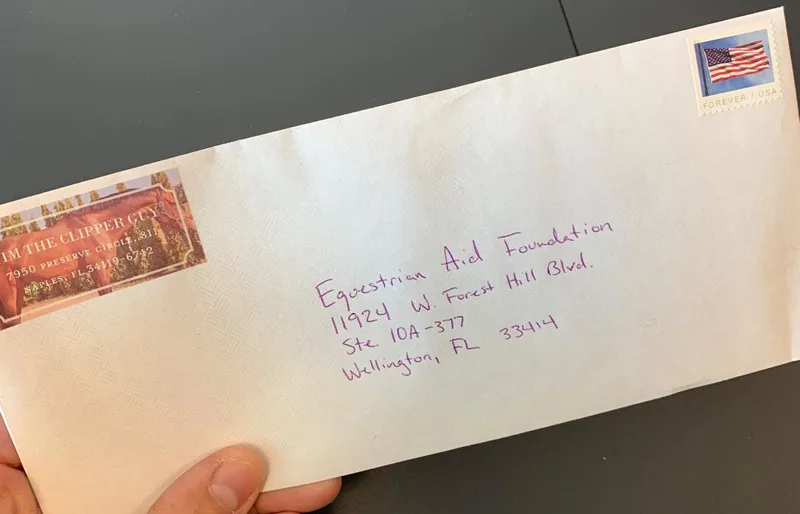 IM THE CLIPPER GUY
7950 PRESERVE CIRCLE, 811
NAPLES, FL 34119-6742
FOREVER / USA
Equestrian Aid Foundation
11924 W. Forest Hill Blvd.
Ste. 10A-377
Wellington, FL 33414